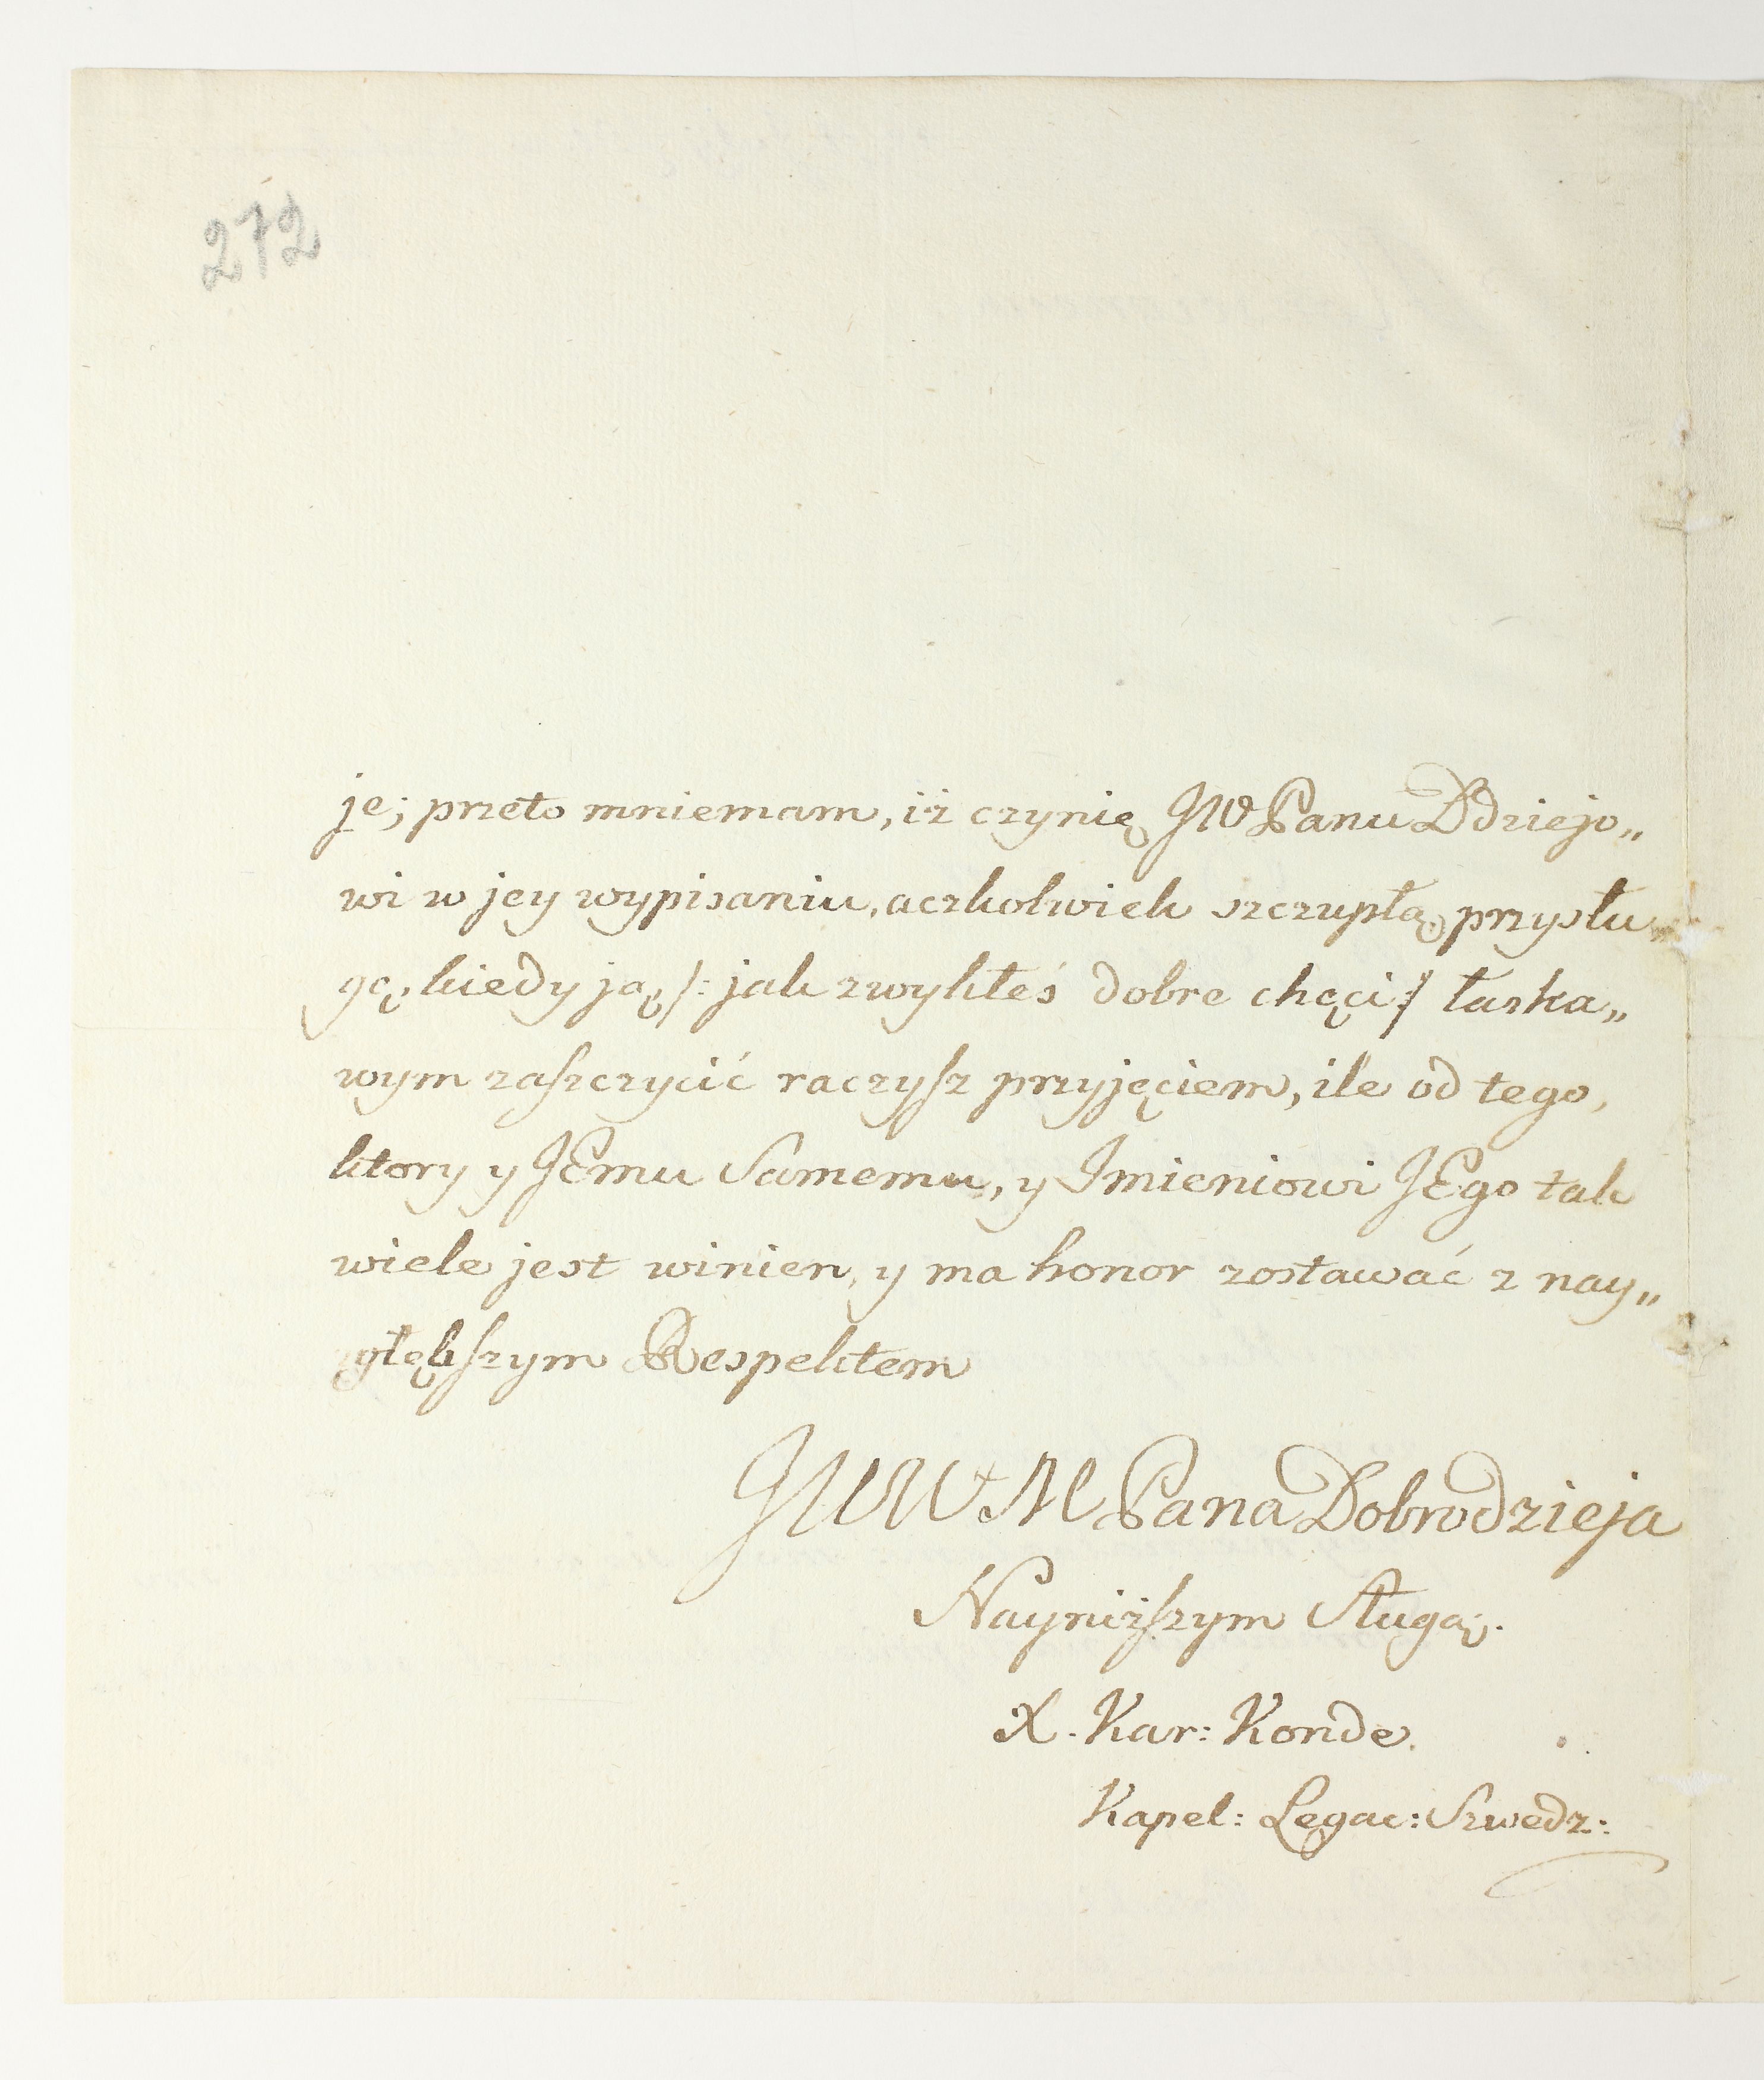 272
je; przeto mniemam, iż czynię JW Panu Ddziejo„
wi w jey wypisaniu, aczkolwiek szczupłą przysłu„
gę, kiedy ją /: jak zwykłeś dobre chęci :/ łaska„
wym zaszczycić raczysz przyjęciem, ile od tego,
ktory y JEmu Samemu, y Imieniowi JEgo tak
wiele jest winien, y ma honor zostawać z nay„
głębszym Respektem
JWW M Pana Dobrodzieja
Nayniższym Sługą.
X. Kar: Konde.
Kapel: Legac: Szwedz: